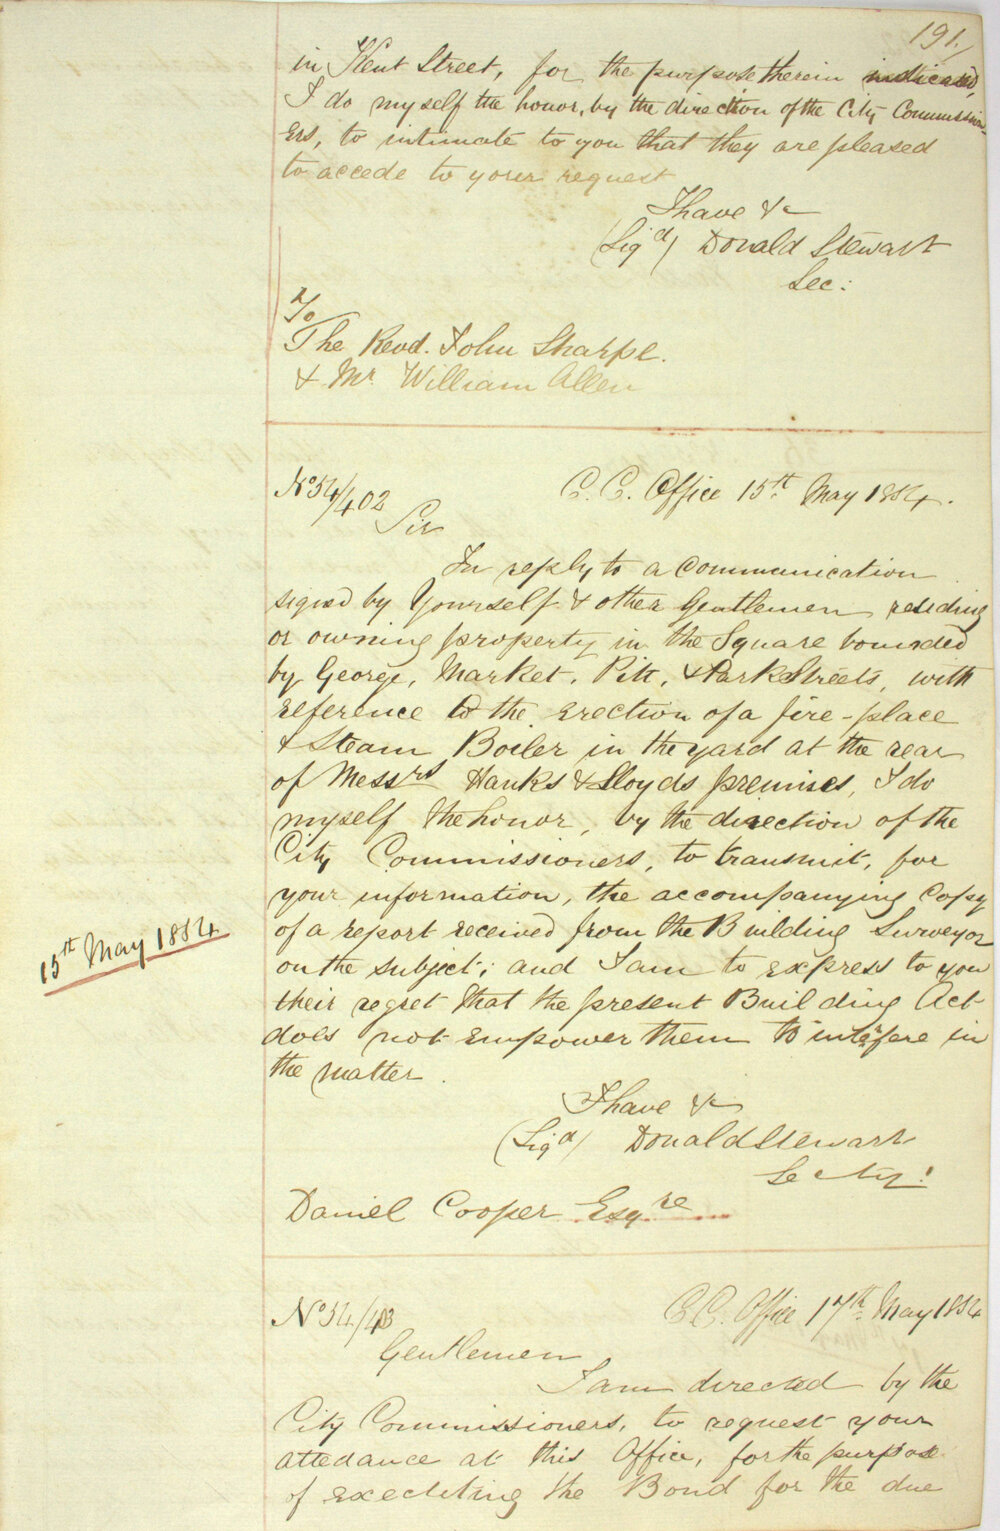 191.
in Kent Street, for the purpose therein indicated,
I do myself the honor, by the direction of the City Commission-
ers, to intimate to you that they are pleased
to accede to your request
I have &c
(Sigd) Donald Stewart
Sec:
To
The Revd. John Sharpe.
& Mr William Allen
No 54/402
C. C. Office 15th May 1854.
Sir
In reply to a communication
signed by Yourself & other Gentlemen residing
or owning property in the Square bounded
by George, Market, Pitt, & Park Streets, with
reference to the erection of a fire-place
& Steam Boiler in the yard at the rear
of Messrs Hanks & Lloyds premises, I do
myself the honor, by the direction of the
City Commissioners, to transmit, for
your information, the accompanying Copy
of a report received from the Building Surveyor
on the subject; and I am to express to you
their regret that the present Building Act
does not empower them to interfere in
the matter.
15th May 1854
I have &c
(Sigd) Donald Stewart
Secty!
Daniel Cooper Esqre
No 54/403
C. C. Office 17th May 1854
Gentlemen
I am directed by the
City Commissioners, to request your
attedance at this Office, for the purpose
of executing the Bond for the due